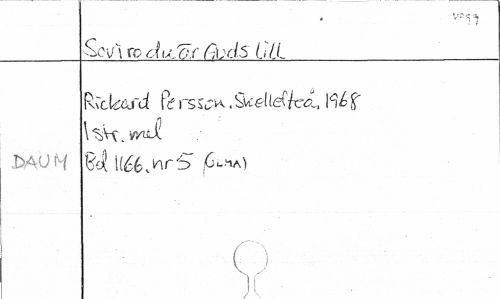 V299
Sov i ro du är Guds lill
Rickard Persson, Skellefteå, 1968
1 str. mel
DAUM Bd 1166, nr 5 (ULMA)